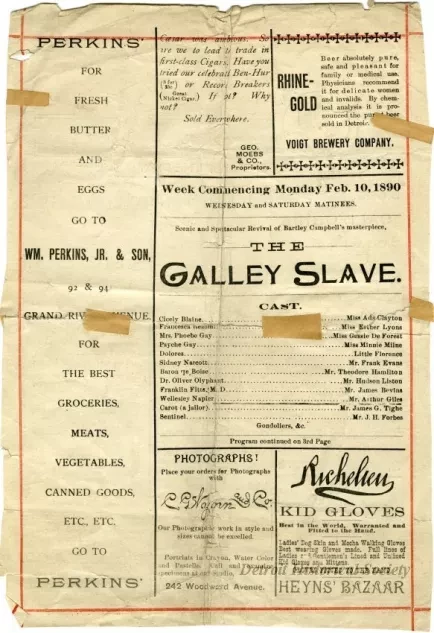 PERKINS'
FOR
FRESH
BUTTER
AND
EGGS
GO TO
WM. PERKINS, JR. & SON,
92 & 94
GRAND RIV AVENUE.
FOR
THE BEST
GROCERIES,
MEATS,
VEGETABLES,
CANNED GOODS,
ETC., ETC.
GO TO
PERKINS'
Cæsar was ambitious. So
are we to lead trade in
first-class Cigars. Have you
tried our celebrat Ben-Hur
or Record Breakers
If not? Why
not?
Sold Everywhere.
GEO.
MOEBS
& CO.,
Proprietors.
RHINE-
GOLD
Beer absolutely pure,
safe and pleasant for
family or medical use.
Physicians recommend
it for delicate women
and invalids. By chem-
ical analysis it is pro-
nounced the purest beer
sold in Detroit.
VOIGT BREWERY COMPANY.
Week Commencing Monday Feb. 10, 1890
WEDNESDAY and SATURDAY MATINEES.
Scenic and Spectacular Revival of Bartley Campbell's masterpiece,
THE
GALLEY SLAVE.
CAST.
Cicely Blaine Miss Ada Clayton
Francesca Miss Esther Lyons
Mrs. Phoebe Gay Miss Gussie De Forest
Psyche Gay Miss Minnie Milne
Dolores Little Florence
Sidney Narcott Mr. Frank Evans
Baron Le Boise Mr. Theodore Hamilton
Dr. Oliver Olyphant Mr. Hudson Liston
Franklin Fitts, M. D. Mr. James Bevins
Wellesley Napier Mr. Arthur Giles
Carot (a Jailor) Mr. James G. Tighe
Sentinel Mr. J. H. Forbes
Gondoliers, &c.
Program continued on 3rd Page
PHOTOGRAPHS!
Place your orders for Photographs
with
and Co.
Our Photographic work in style and
sizes cannot be excelled.
Portraits in Crayon, Water Color
and Pastelle. Call and
specimens at our Studio.
242 Woodward Avenue.
Richelieu
KID GLOVES
Best in the World, Warranted and
Fitted to the Hand.
Ladies' Dog Skin and Mocha Walking Gloves
Best wearing Gloves made. Full lines of
Ladies' & Gentlemen's Lined and Unlined
Kid Gloves and Mittens.
HEYNS' BAZAAR
Detroit Historical Society